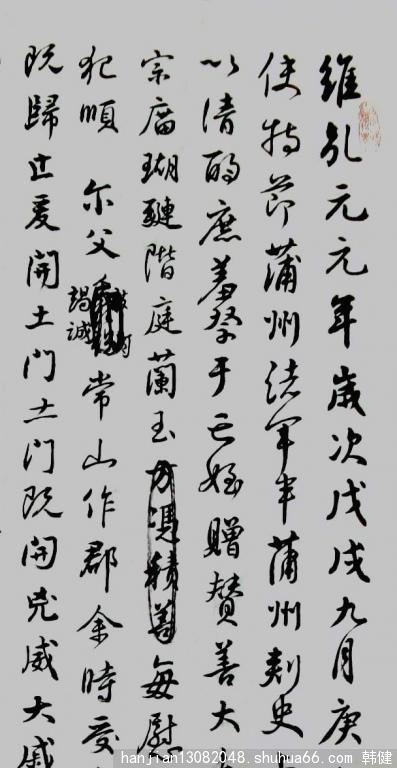 維乾元元年歲次戊戌九月庚
使持節蒲州諸軍事蒲州刺史
以清酌庶羞祭于亡姪贈贊善大
宗廟瑚璉階庭蘭玉方馮積善每慰
犯順 尔父竭誠常山作郡余時受
既歸止爰開土門土門既開兇威大蹙
hanjian13082048.shuhua66.com 韩健